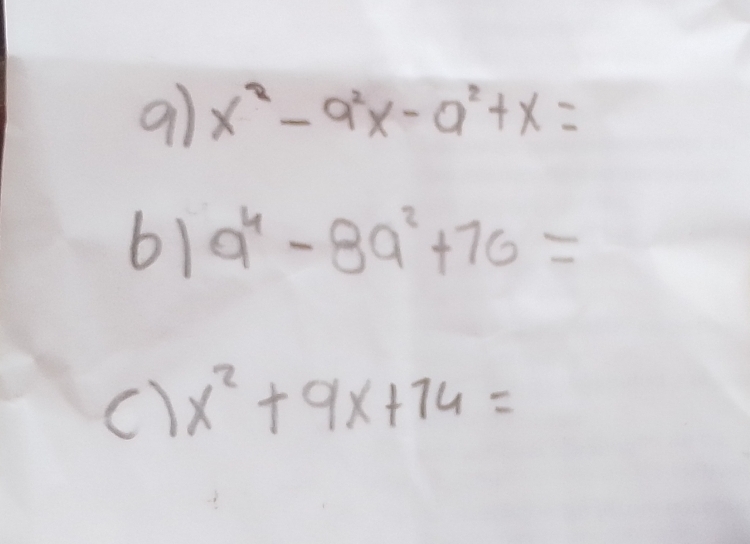 a) x² - a²x - a² + x =
b) a⁴ - 8a² + 16 =
c) x² + 9x + 14 =